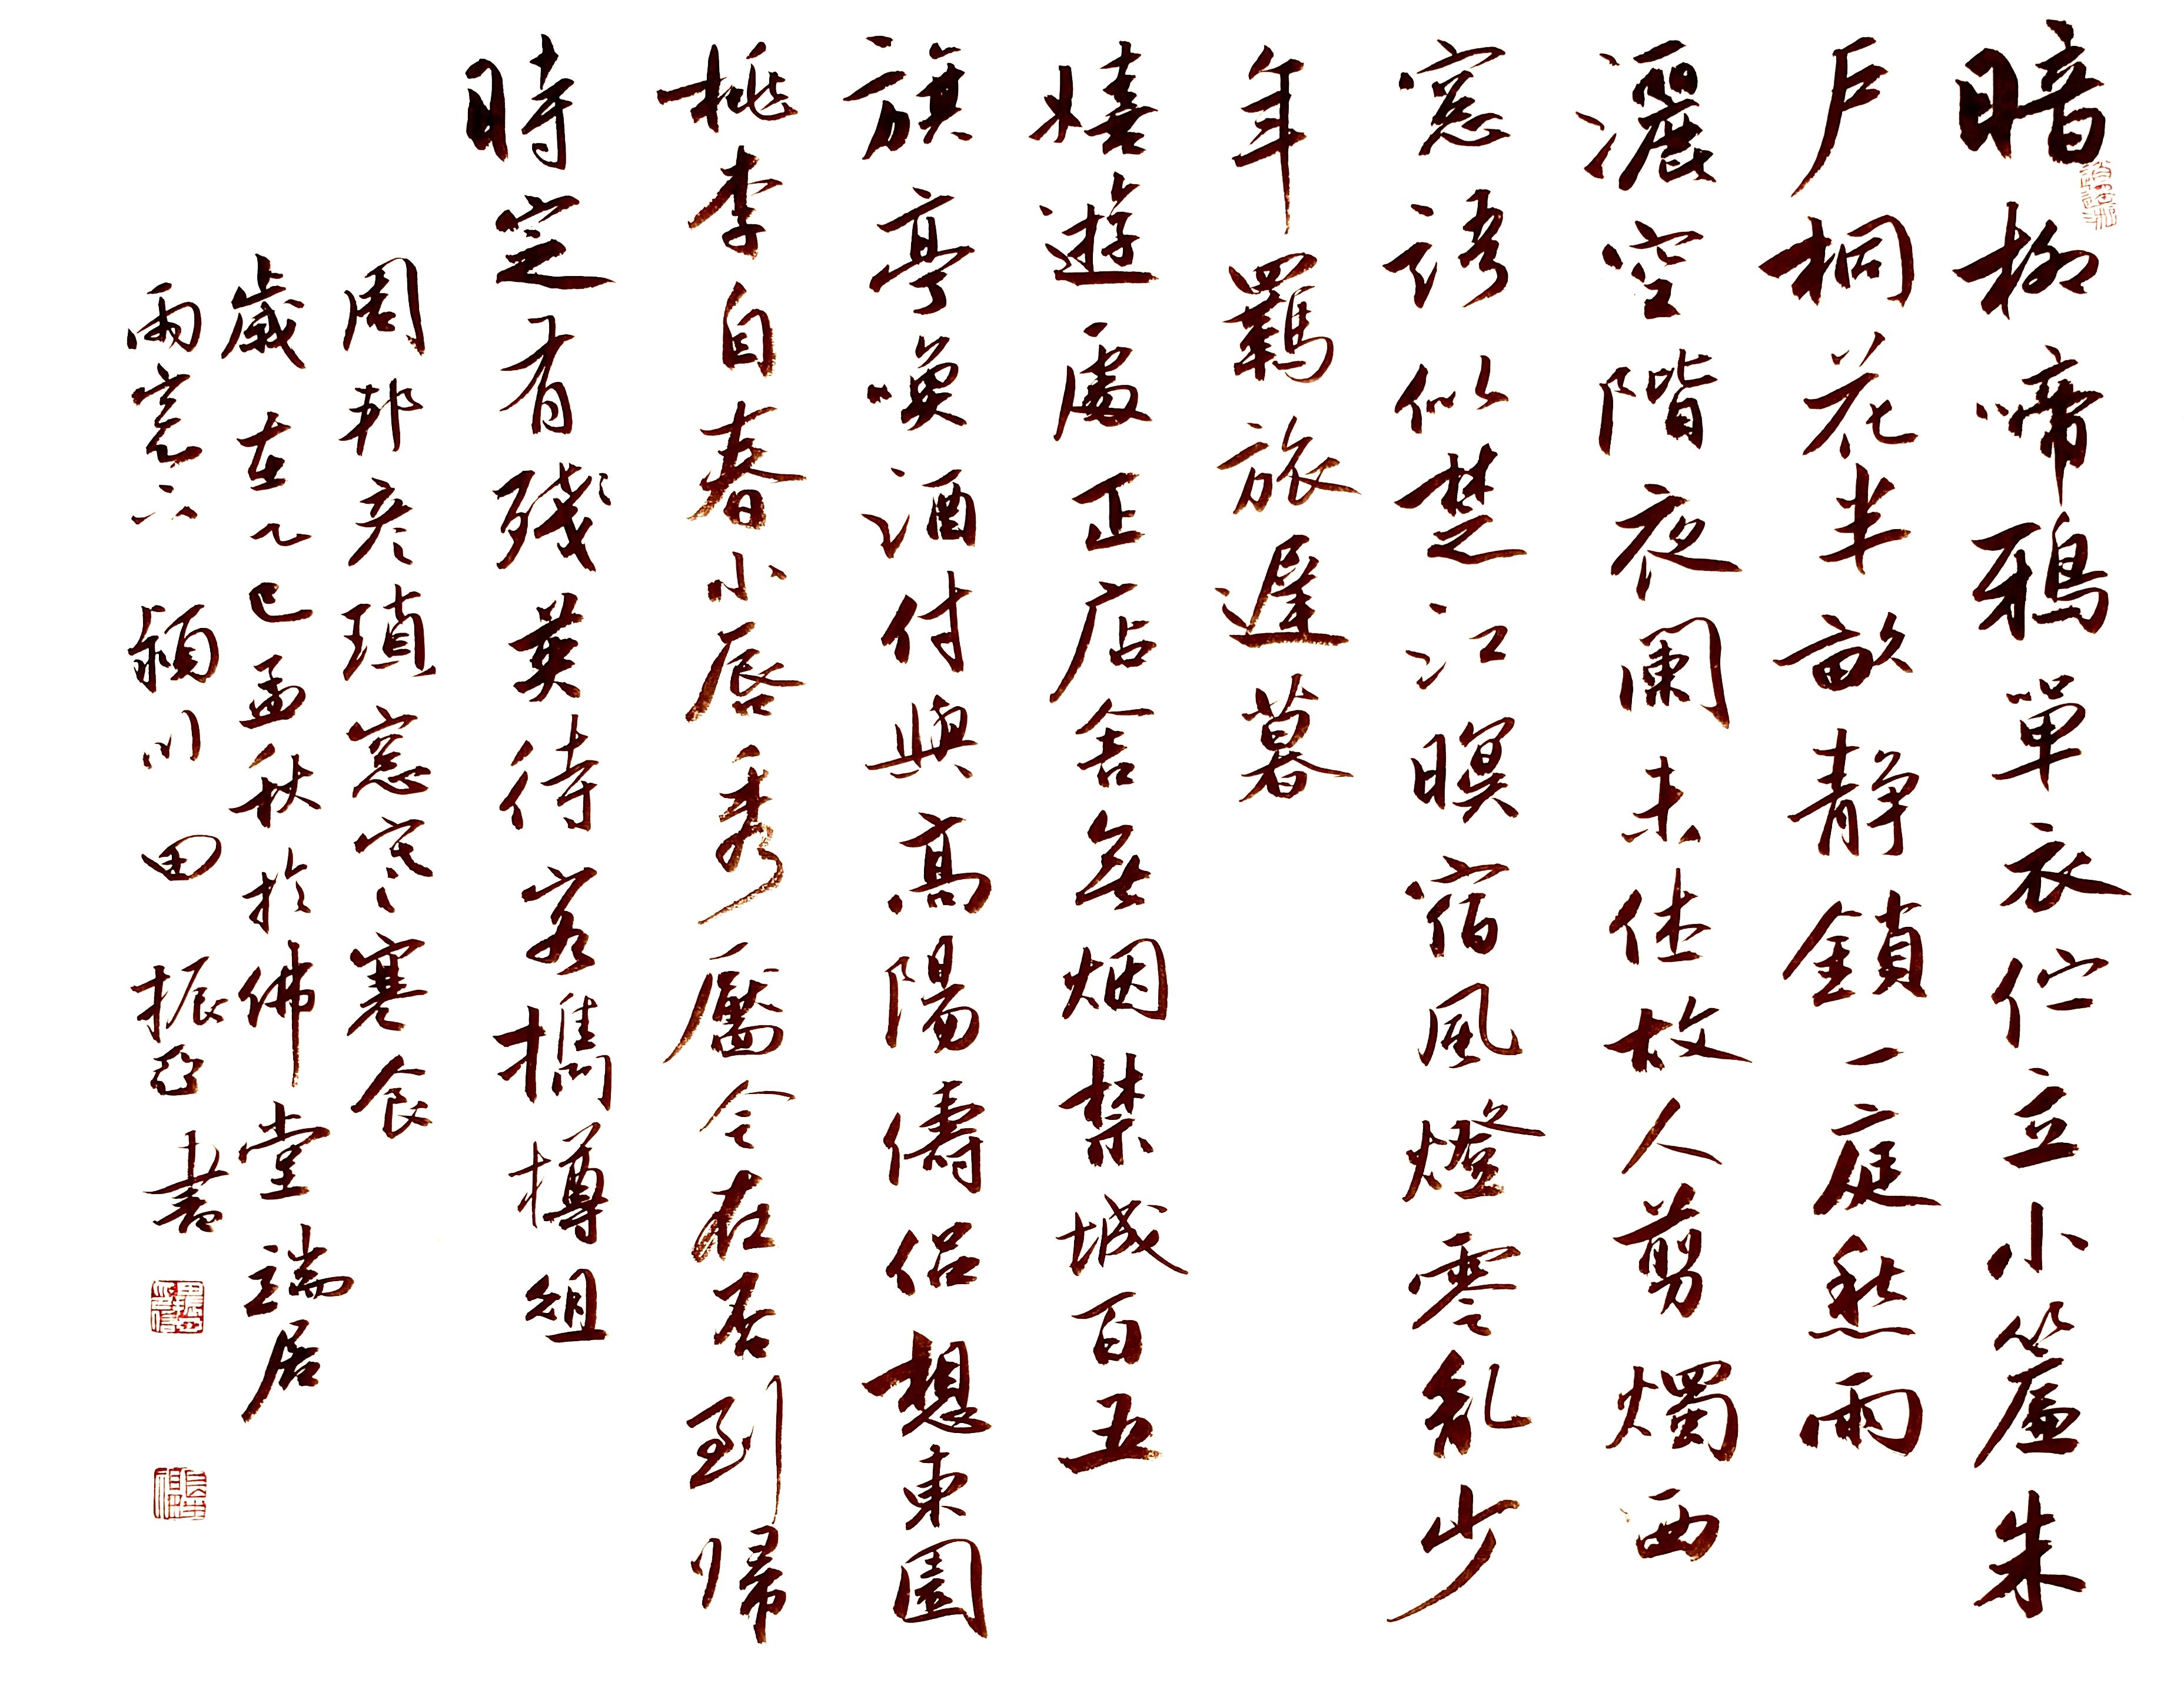 暗柳啼鴉單衣佇立小簾朱
戶桐花半畝靜鎖一庭愁雨
灑空階夜闌未休故人剪燭西
窓語似楚江暝宿風燈零乱少
年羈旅遲暮
嬉遊處正店舍無烟禁城百五
旗亭喚酒付與高陽儔侶想東園
桃李自春小唇秀靨今在否到歸
時定有殘英待客攜樽組
周邦彥瑣窓寒寒食
歲在乙巳孟秋於佛堂瑞居
雨窓下 潁川 田 振亞 書